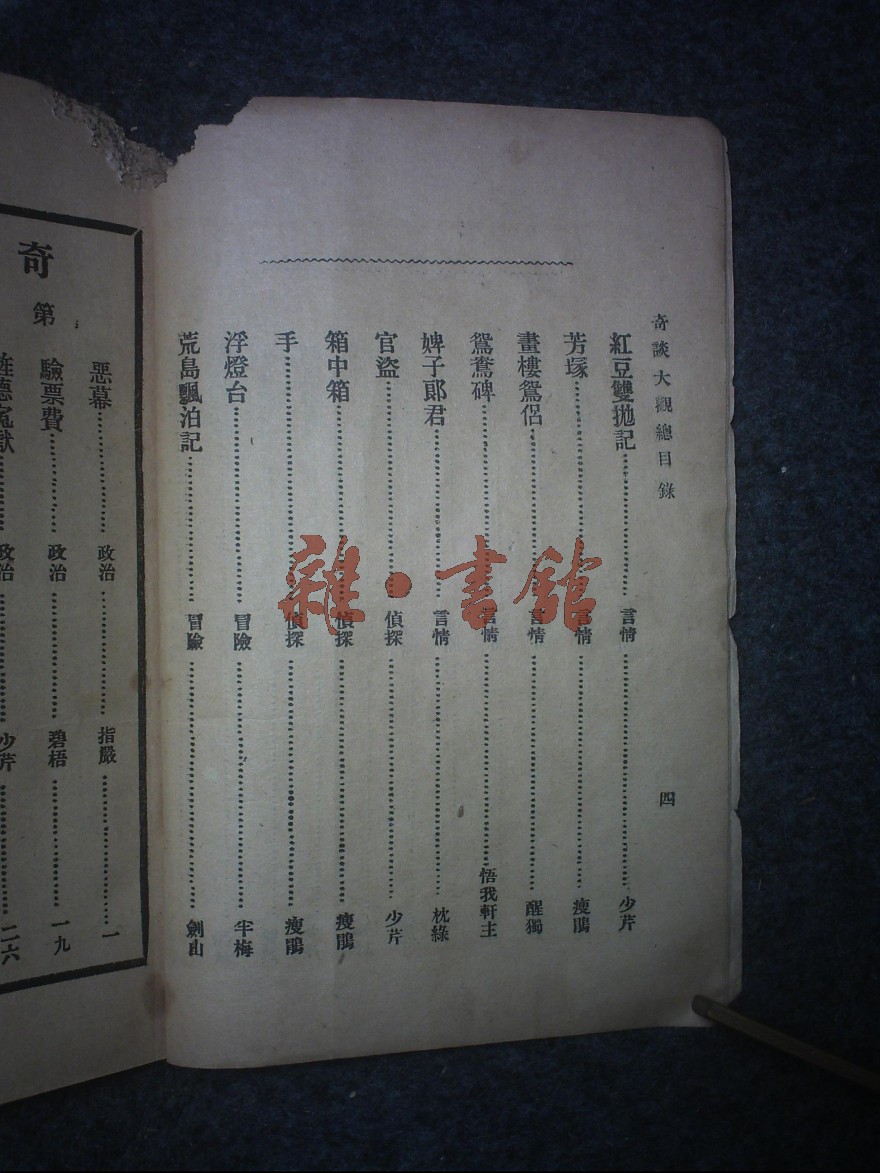 奇談大觀總目錄 四
紅豆雙抛記 言情 少芹
芳塚 言情 瘦鵑
畫樓鴛侶 言情 醒獨
鴛鴦碑 言情 悟我軒主
婢子郞君 言情 枕綠
官盜 偵探 少芹
箱中箱 偵探 瘦鵑
手 偵探 瘦鵑
浮燈台 冒險 半梅
荒島飄泊記 冒險 劍山
雜·書館
奇
第
惡幕 政治 指嚴 一
驗票費 政治 碧梧 一九
德冤獄 政治 少芹 二六